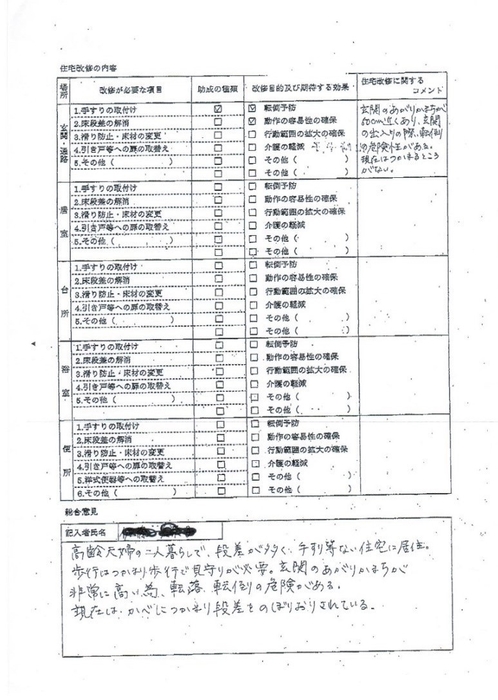 住宅改修の内容
場所 改修が必要な項目 助成の種類 改修目的及び期待する効果 住宅改修に関するコメント
玄関・通路
1.手すりの取付け ☑ ☑ 転倒予防
2.床段差の解消 □ ☑ 動作の容易性の確保
3.滑り防止・床材の変更 □ □ 行動範囲の拡大の確保
4.引き戸等への扉の取替え □ □ 介護の軽減
5.その他( ) □ □ その他( )
□ その他( )
玄関のあがりかまちが
60cm近くあり、玄関
の出入りの際、転倒
の危険性がある。
現在はつかまるところ
がない。
居室
1.手すりの取付け □ □ 転倒予防
2.床段差の解消 □ □ 動作の容易性の確保
3.滑り防止・床材の変更 □ □ 行動範囲の拡大の確保
4.引き戸等への扉の取替え □ □ 介護の軽減
5.その他( ) □ □ その他( )
□ その他( )
台所
1.手すりの取付け □ □ 転倒予防
2.床段差の解消 □ □ 動作の容易性の確保
3.滑り防止・床材の変更 □ □ 行動範囲の拡大の確保
4.引き戸等への扉の取替え □ □ 介護の軽減
5.その他( ) □ □ その他( )
□ その他( )
浴室
1.手すりの取付け □ □ 転倒予防
2.床段差の解消 □ □ 動作の容易性の確保
3.滑り防止・床材の変更 □ □ 行動範囲の拡大の確保
4.引き戸等への扉の取替え □ □ 介護の軽減
5.その他( ) □ □ その他( )
□ その他( )
便所
1.手すりの取付け □ □ 転倒予防
2.床段差の解消 □ □ 動作の容易性の確保
3.滑り防止・床材の変更 □ □ 行動範囲の拡大の確保
4.引き戸等への扉の取替え □ □ 介護の軽減
5.洋式便器等への取替え □ □ その他( )
6.その他( ) □ □ その他( )
総合意見
記入者氏名
高齢夫婦の二人暮らしで、段差が多く、手すり等ない住宅に居住。
歩行はつかまり歩行で見守りが必要。玄関のあがりかまちが
非常に高い為、転落、転倒の危険がある。
現在は、かべにつかまり段差をのぼりおりされている。